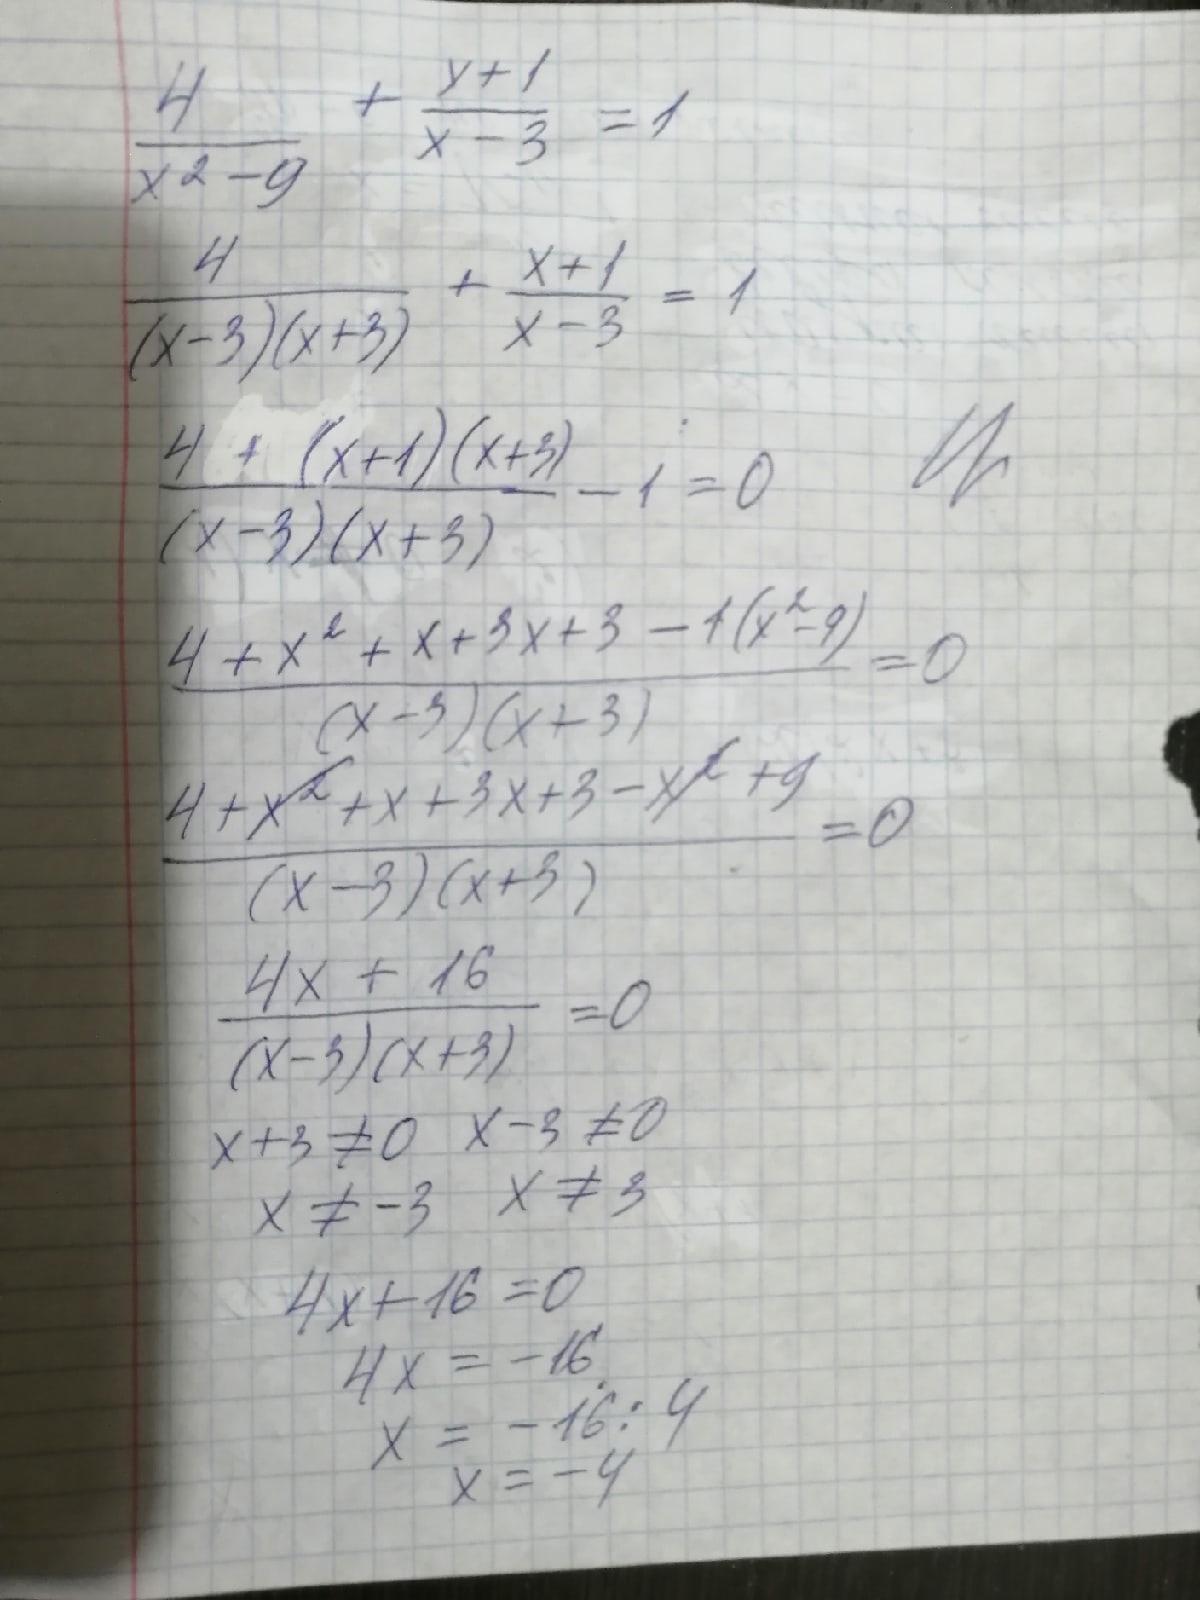 4/(x² - 9) + (x+1)/(x-3) = 1
4/((x-3)(x+3)) + (x+1)/(x-3) = 1
(4 + (x+1)(x+3))/((x-3)(x+3)) - 1 = 0
(4 + x² + x + 3x + 3 - 1(x²-9))/((x-3)(x+3)) = 0
(4 + x² + x + 3x + 3 - x² + 9)/((x-3)(x+3)) = 0
(4x + 16)/((x-3)(x+3)) = 0
x+3 ≠ 0 x-3 ≠ 0
x ≠ -3 x ≠ 3
4x+16 = 0
4x = -16
x = -16 : 4
x = -4